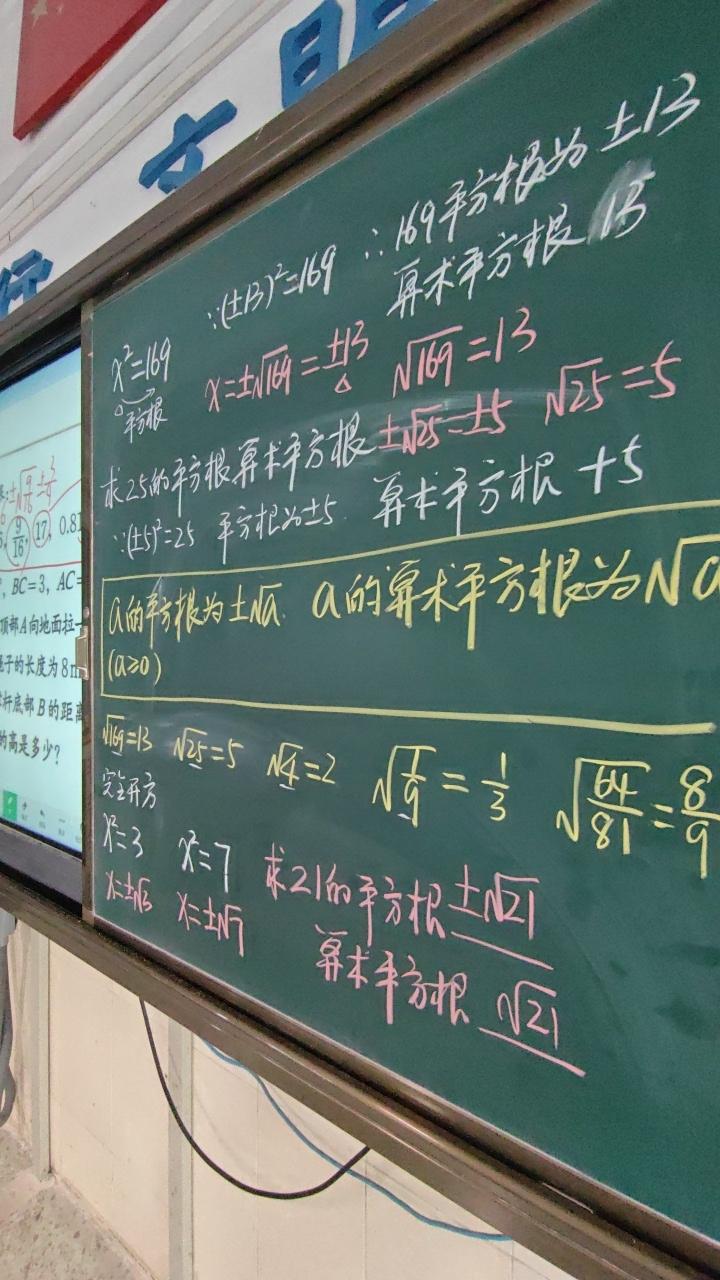 文明
行
∵(±13)²=169 ∴169平方根为 ±13
算术平方根 13
x²=169 x=±√169=±13 √169=13
平方根
求25的平方根算术平方根 ±√25=±5 √25=5
∵(±5)²=25 平方根为±5. 算术平方根 +5
a的平方根为±√a. a的算术平方根为√a
(a≥0)
√169=13 √25=5 √4=2 √(1/9)=1/3 √(64/81)=8/9
完全开方
x²=3 x²=7 求21的平方根 ±√21
x=±√3 x=±√7 算术平方根 √21
9/16, 17, 0.81
, BC=3, AC=
顶部A向地面拉一
绳子的长度为8m
杆底部B的距离
的高是多少?